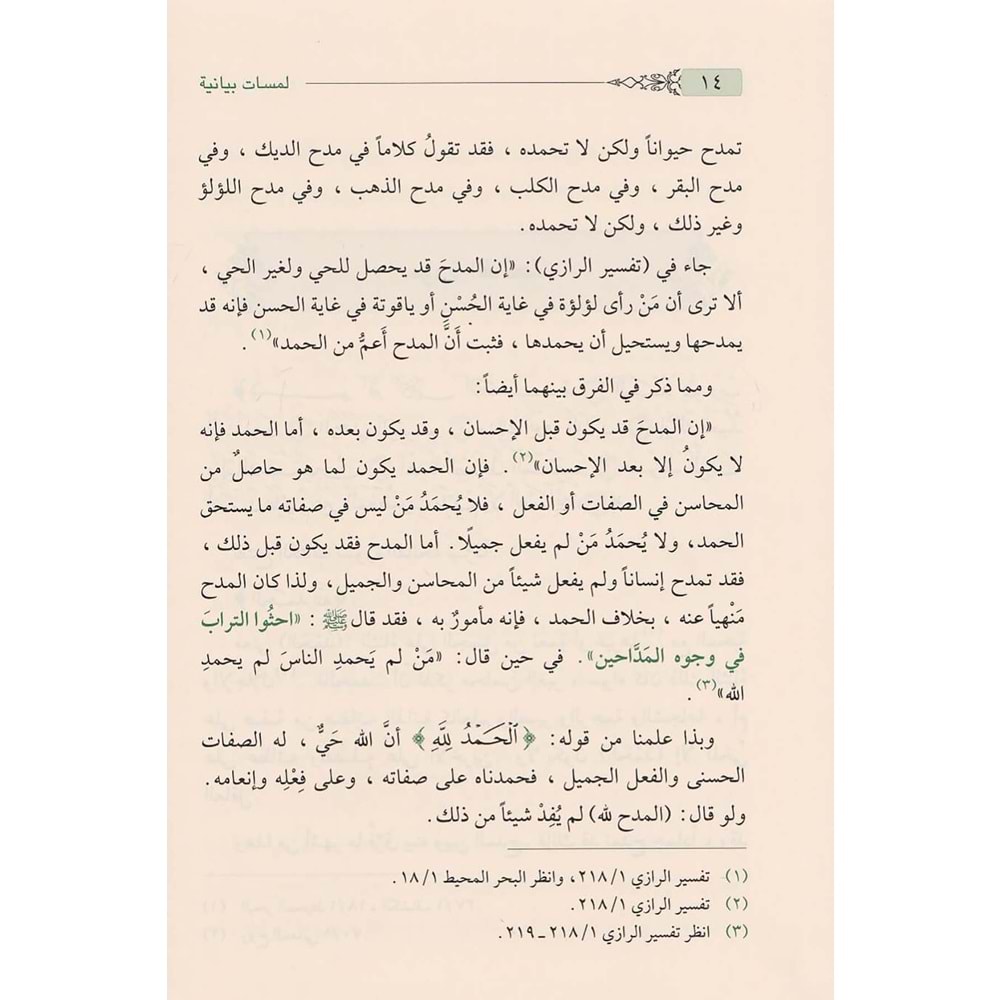 ١٤ لمسات بيانية
تمدح حيواناً ولكن لا تحمده ، فقد تقولُ كلاماً في مدح الديك ، وفي
مدح البقر ، وفي مدح الكلب ، وفي مدح الذهب ، وفي مدح اللؤلؤ
وغير ذلك ، ولكن لا تحمده.
جاء في (تفسير الرازي): «إن المدحَ قد يحصل للحي ولغير الحي ،
ألا ترى أن مَنْ رأى لؤلؤة في غاية الحُسْنِ أو ياقوتة في غاية الحسن فإنه قد
يمدحها ويستحيل أن يحمدها ، فثبت أَنَّ المدح أَعمُّ من الحمد»(١) .
ومما ذكر في الفرق بينهما أيضاً:
«إن المدحَ قد يكون قبل الإحسان ، وقد يكون بعده ، أما الحمد فإنه
لا يكونُ إلا بعد الإحسان»(٢). فإن الحمد يكون لما هو حاصلٌ من
المحاسن في الصفات أو الفعل ، فلا يُحمَدُ مَنْ ليس في صفاته ما يستحق
الحمد، ولا يُحمَدُ مَنْ لم يفعل جميلًا. أما المدح فقد يكون قبل ذلك ،
فقد تمدح إنساناً ولم يفعل شيئاً من المحاسن والجميل، ولذا كان المدح
مَنْهياً عنه ، بخلاف الحمد ، فإنه مأمورٌ به ، فقد قال ﷺ : «احثُوا الترابَ
في وجوه المَدَّاحين». في حين قال: «مَنْ لم يَحمدِ الناسَ لم يحمدِ
الله»(٣) .
وبذا علمنا من قوله: ﴿ ٱلْحَمْدُ لِلَّهِ ﴾ أنَّ الله حَيٌّ ، له الصفات
الحسنى والفعل الجميل ، فحمدناه على صفاته ، وعلى فِعْلِه وإنعامه.
ولو قال: (المدح لله) لم يُفِدْ شيئاً من ذلك.
(١) تفسير الرازي ٢١٨/١، وانظر البحر المحيط ١٨/١ .
(٢) تفسير الرازي ٢١٨/١.
(٣) انظر تفسير الرازي ٢١٨/١ ـ ٢١٩.